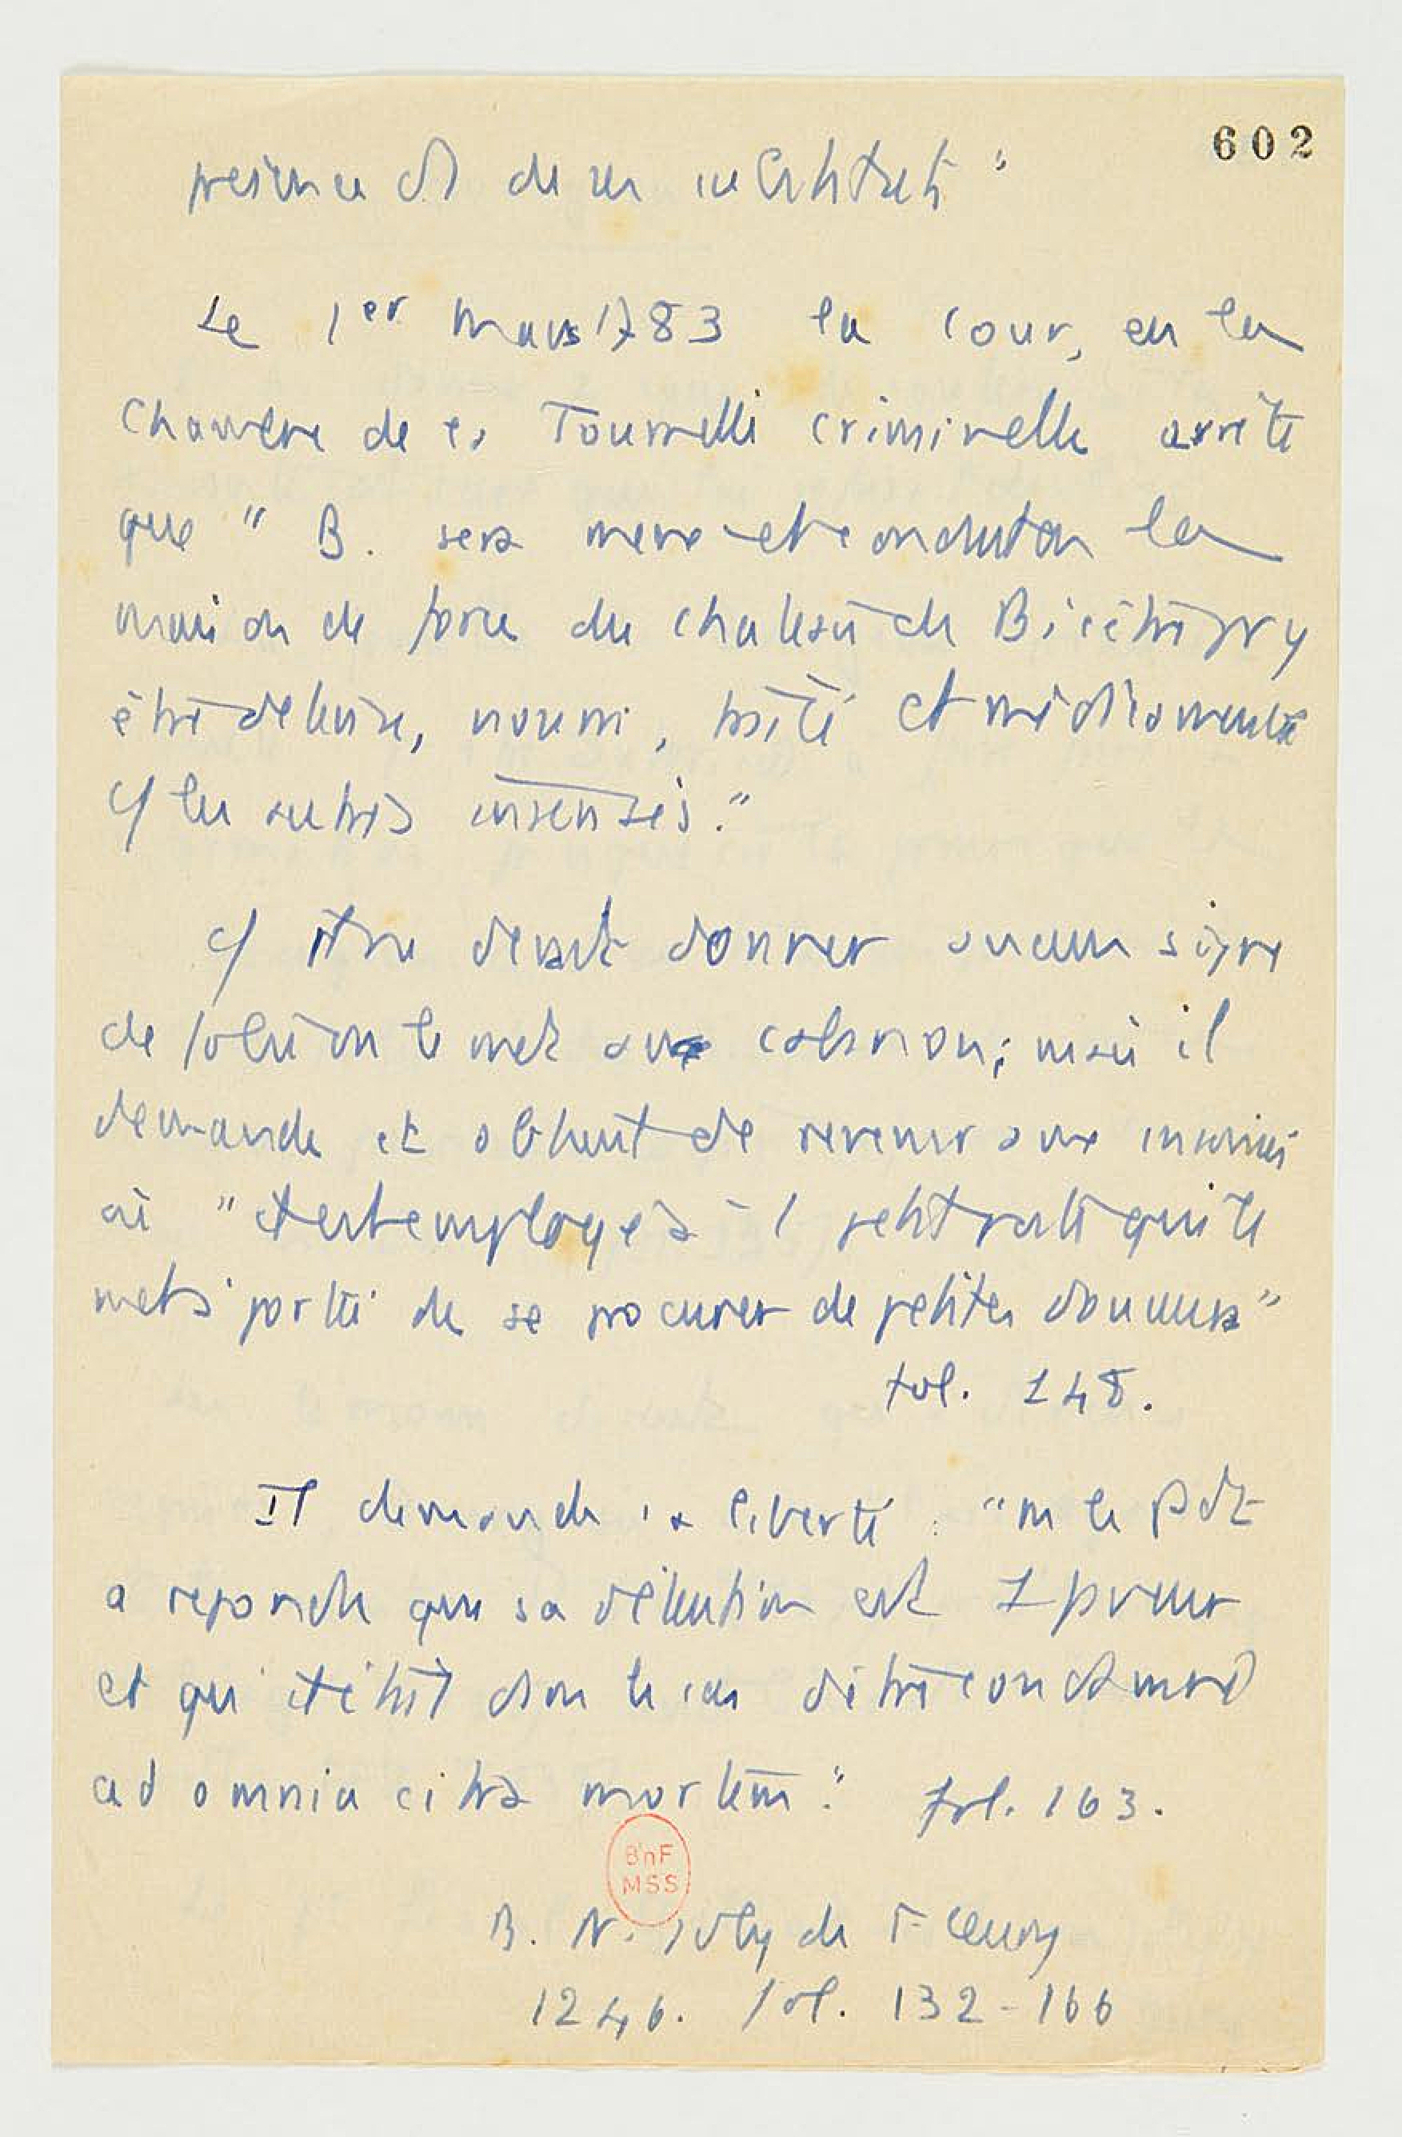 602
présence d de
Le 1er mars 1783 la cour, en la
chambre de la Tournelle criminelle arrête
que " B. sera mené et conduit dans la
maison de force du chateau de Bicêtre pr y
être detenu, nourri, traité et médicamenté
c/ les autres insensés."
c/ il ne devait donner aucun signe
de folie on le met au cabanon; mais il
demande et obtient de revenir aux insensés
où " il est employé à 1 petit travail qui le
met à portée de se procurer de petites douceurs"
fol. 148.
Il demande la liberté : "m le Pdt
a repondu que sa détention est 1 faveur
et qu'il était dans le cas d'être condamné
ad omnia citra mortem." fol. 163.
BnF
MSS
B. N. Joly de Fleury
1246. fol. 132-166